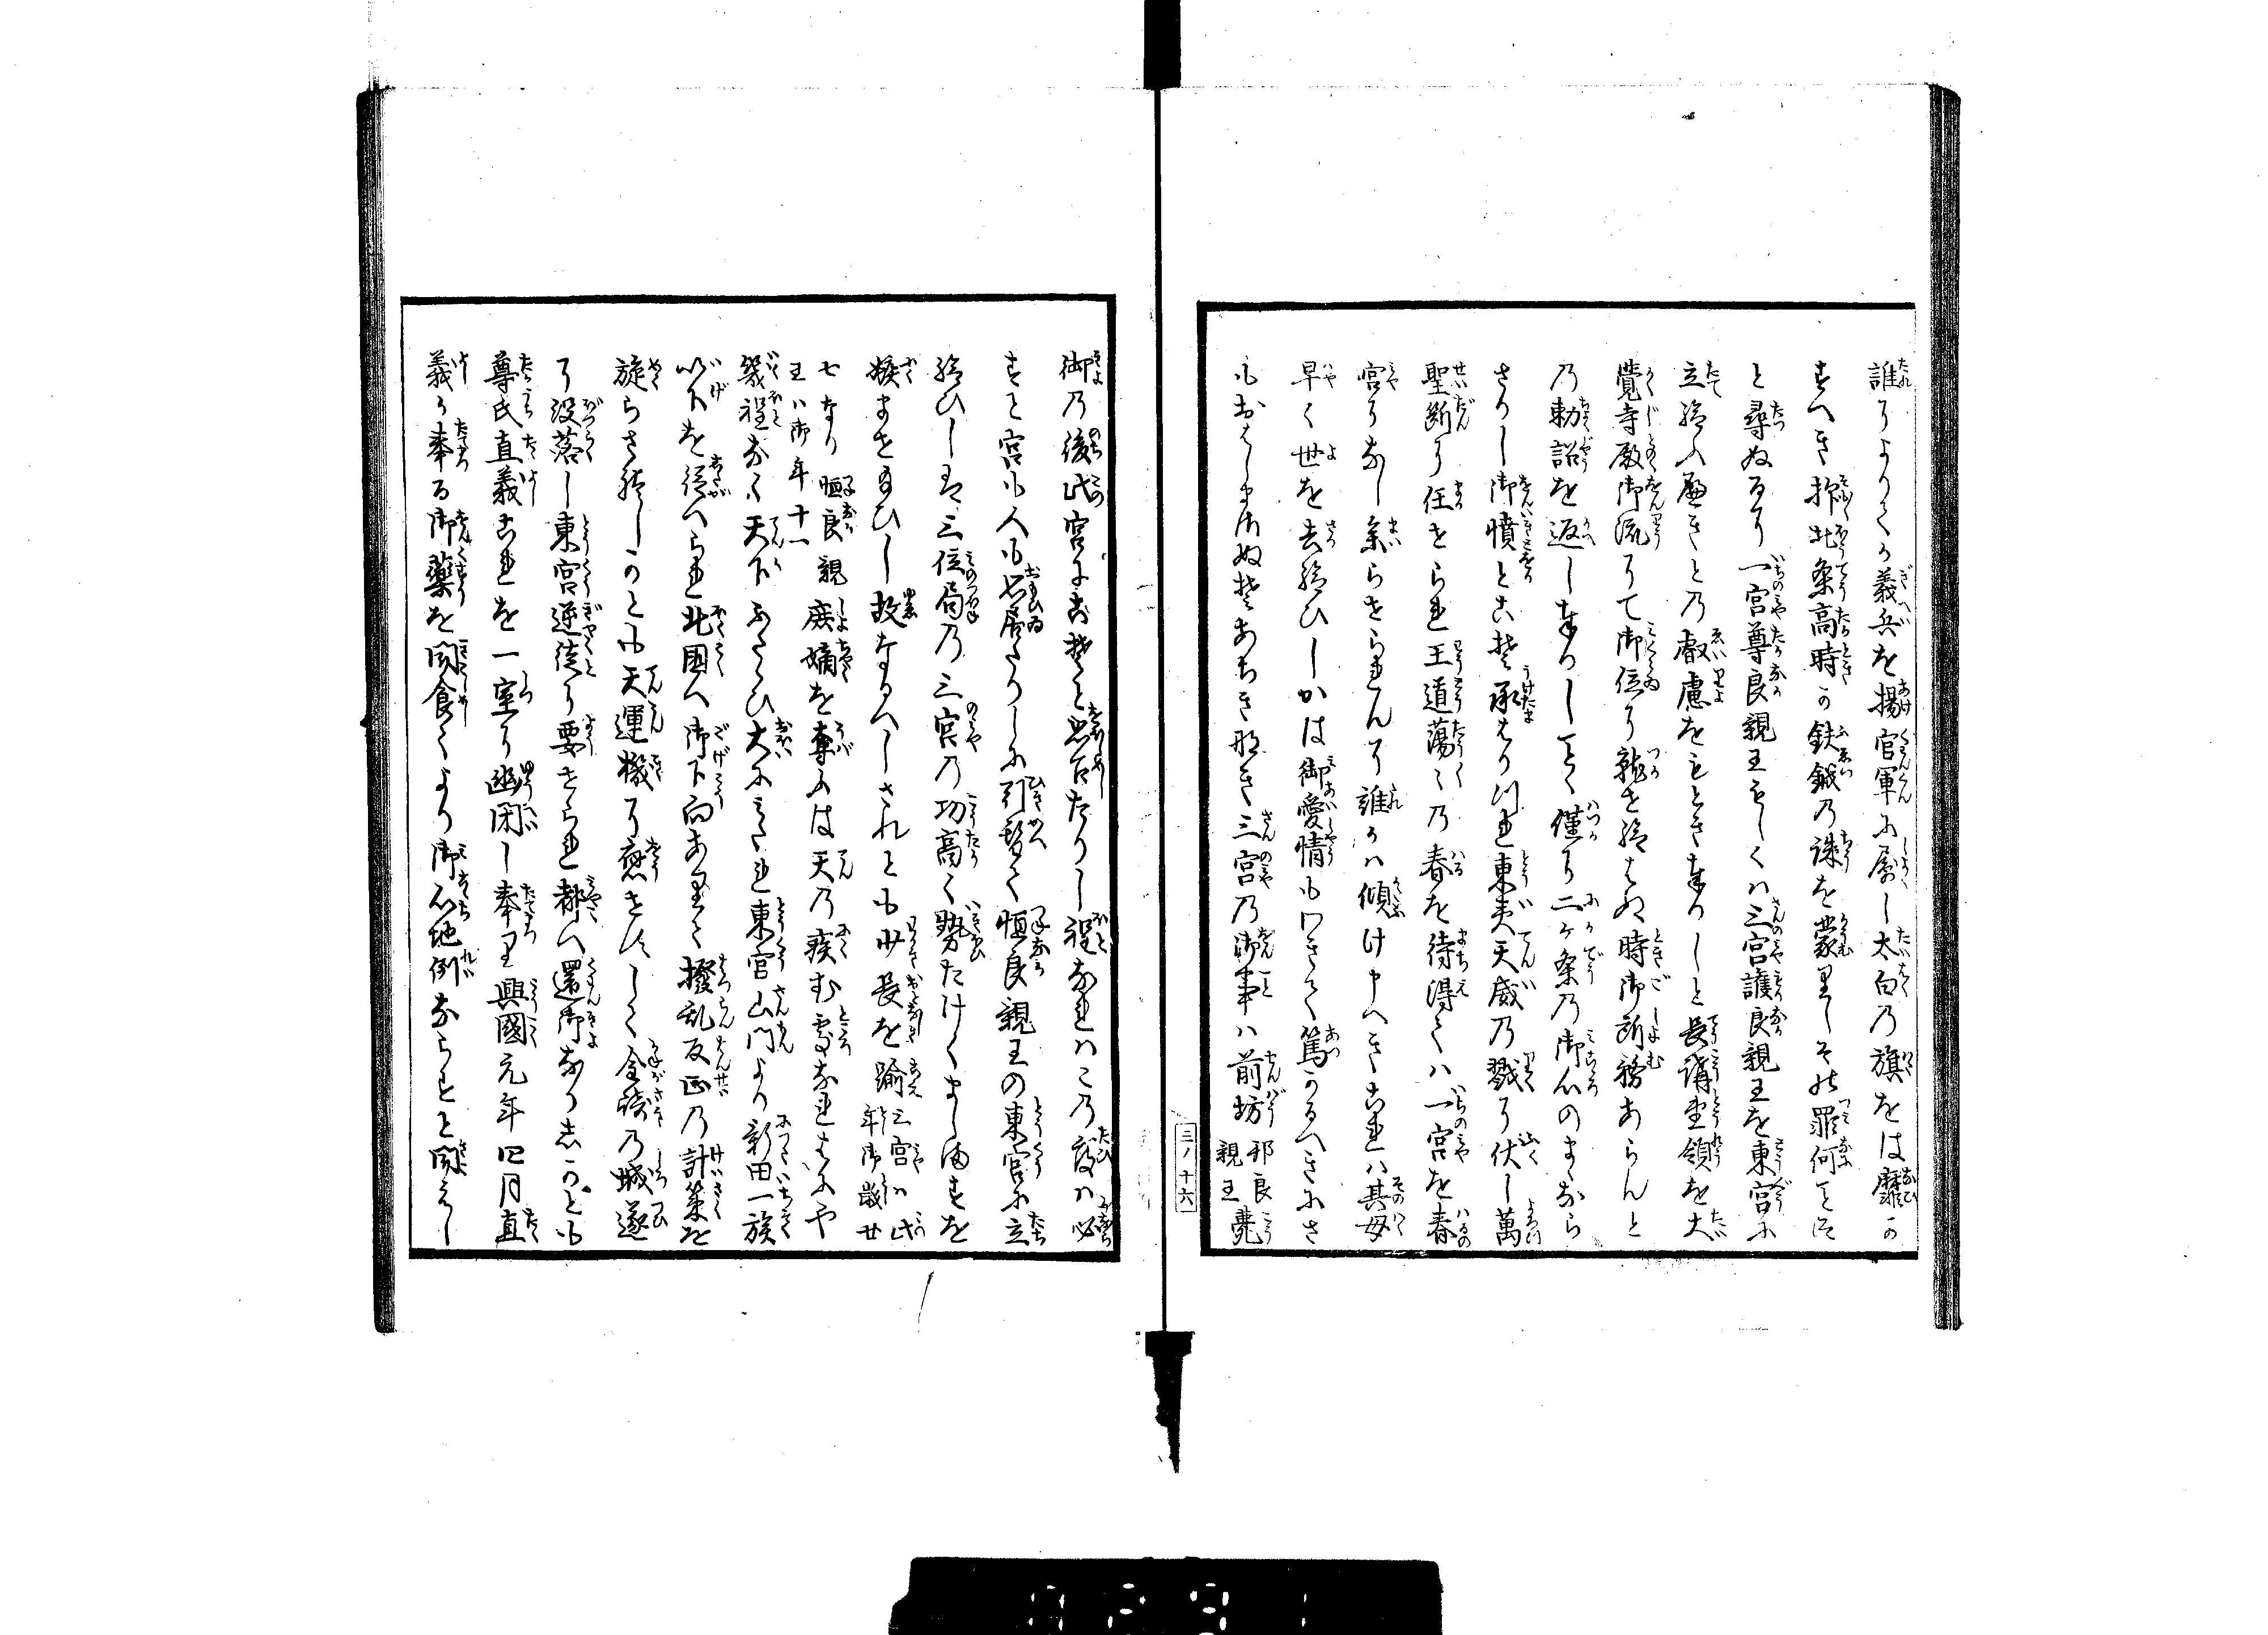 誰によりてか義兵を揚官軍に属し太白の旗をは靡か
すへき抑北条高時か鉄鉞の誅を蒙りしその罪何そ
と尋ぬるに一宮尊良親王もしくハ三宮護良親王を東宮に
立給ふ廉きとの叡慮をもとき奉りしと長講堂領を大
覚寺殿御流にて御位に就せ給はぬ時御所務あらんと
の勅詔を返し奉りしとく僅に二ケ条の御心のまゝなら
さりし御憤とこそ承はりつれ東夷天威の戮に伏し萬
聖断に任せられ王道蕩々の春を待得てハ一宮を春
宮になし参らせられんに誰かハ傾け申へきこれハ其母
早く世を去給ひしかは御愛情もわきて篤かるへきにさ
もおはしまさぬそあちきなき三宮の御事ハ前坊 邦良親王薨
御の後此宮にこそと思召たりし程なれハこの度ハ必
すと宮も人も思居たりしに引替て恒良親王の東宮に立
給ひしは三位局の三宮の功高く勢たけくましますを
嫉ませ給ひし故なるへしされとも少長を踰 三宮ハ此年御歳廿
七なり恒良親王ハ御年十一 庶嫡を奪ふは天の疾む所なれはにや
幾程なく天下ふたゝひ大にみたれ東宮山門より新田一族
以下を従へられ北国へ御下向ありて撥乱反正の計策を
旋らさせしかとも天運機に応せすして金崎の城遂
に没落し東宮逆徒に要せられ都へ還御なりしかども
尊氏直義これを一室に幽閉し奉り興國元年四月直
義か奉る御薬を聞食てより御心地例ならすと聞えし
三ノ十六